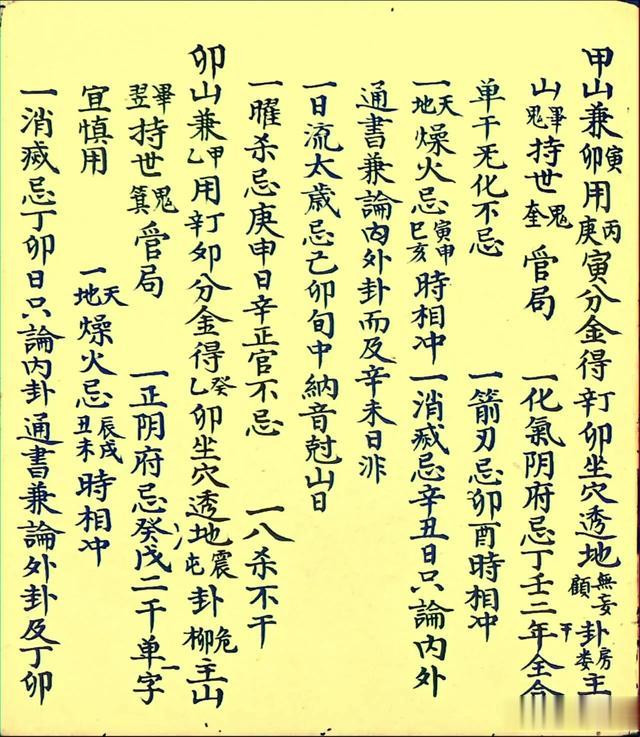 甲山兼寅卯用丙庚寅分金得辛丁卯坐穴透地無妄頤卦房娄主
山畢鬼持世鬼奎管局 一化氣阴府忌丁壬二干年全合
单干旡化不忌 一箭刃忌卯酉時相冲
一天地燥火忌寅申巳亥時相冲 一消烕忌辛丑日只論内外
通書兼論内外卦而及辛未日非
一日流太歲忌己卯旬中納音尅山日
一曜杀忌庚申日辛正官不忌 一八杀不干
卯山兼甲乙用辛丁卯分金得癸乙卯坐穴透地震屯卦危柳主山
畢翌持世鬼箕管局 一正阴府忌癸戊二干单一字
宜慎用 一天地燥火忌辰戌丑未時相冲
一消烕忌丁卯日只論内卦通書兼論外卦及丁卯